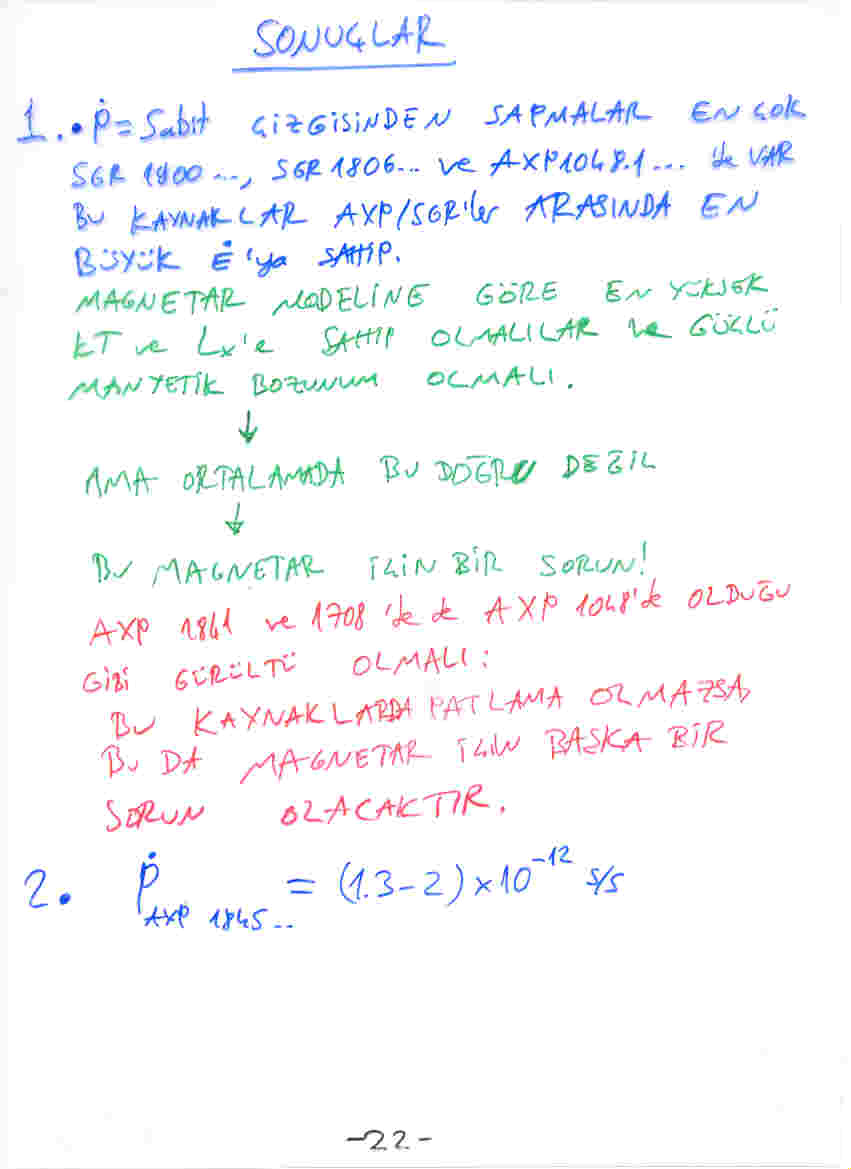 SONUÇLAR
1. • Ṗ = Sabit ÇİZGİSİNDEN SAPMALAR EN ÇOK
SGR 1900..., SGR 1806... ve AXP1048.1... 'de VAR
BU KAYNAKLAR AXP/SGR'ler ARASINDA EN
BÜYÜK Ė'ya SAHİP.
MAGNETAR MODELİNE GÖRE EN YÜKSEK
kT ve Lx'e SAHİP OLMALILAR ve GÜÇLÜ
MANYETİK BOZUNUM OLMALI.
↓
AMA ORTALAMADA BU DOĞRU DEĞİL
↓
BU MAGNETAR İÇİN BİR SORUN!
AXP 1841 ve 1708'de de AXP 1048'de OLDUĞU
GİBİ GÜRÜLTÜ OLMALI:
BU KAYNAKLARDA PATLAMA OLMAZSA,
BU DA MAGNETAR İÇİN BAŞKA BİR
SORUN OLACAKTIR.
2. Ṗ AXP 1845.. = (1.3-2)×10⁻¹² s/s
-22-